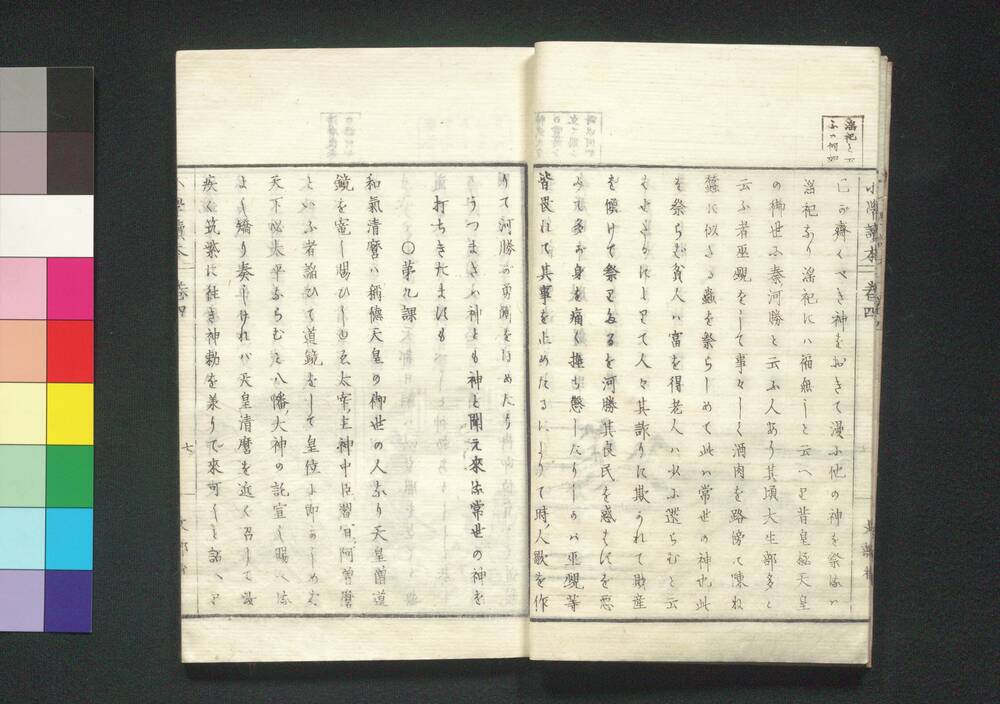 淫祀と云
ふハ何如
小學讀本 卷四
己が齋くべき神をおきて漫に他の神を祭るハ
淫祀なり淫祀にハ福無しと云へり昔皇極天皇
の御世に秦河勝と云ふ人あり其頃大生部多と
云ふ者巫覡をして事々しく酒肉を路傍に陳ね
蠶に似たる蟲を祭らしめて此ハ常世の神也此
を祭らば貧人ハ富を得老人ハ少に還らむと云
もてさわぐによりて人々其訴りに欺かれて財産
を傾けて祭りたるを河勝其良民を惑はすを惡
みて多が身を痛く捶ち懲したりしかバ巫覡等
皆畏れて其事を止めたるによりて時人歌を作
りて河勝が勇斷をほめたり
うつまさハ神とも神と聞え來る常世の神を
打ちきたますも
〇第九課
和氣清麿ハ稱德天皇の御世の人なり天皇僧道
鏡を寵し賜ひしゆゑ太宰主神中臣習宜阿曾麿
といふ者諂ひて道鏡をして皇位に即かしめバ
天下必太平ならむと八幡大神の託宣し賜へる
よし矯り奏しければ天皇清麿を近く召して汝
疾く筑紫に往き神勅を承りて來可しと詔へり
小學讀本 卷四
七
文部省